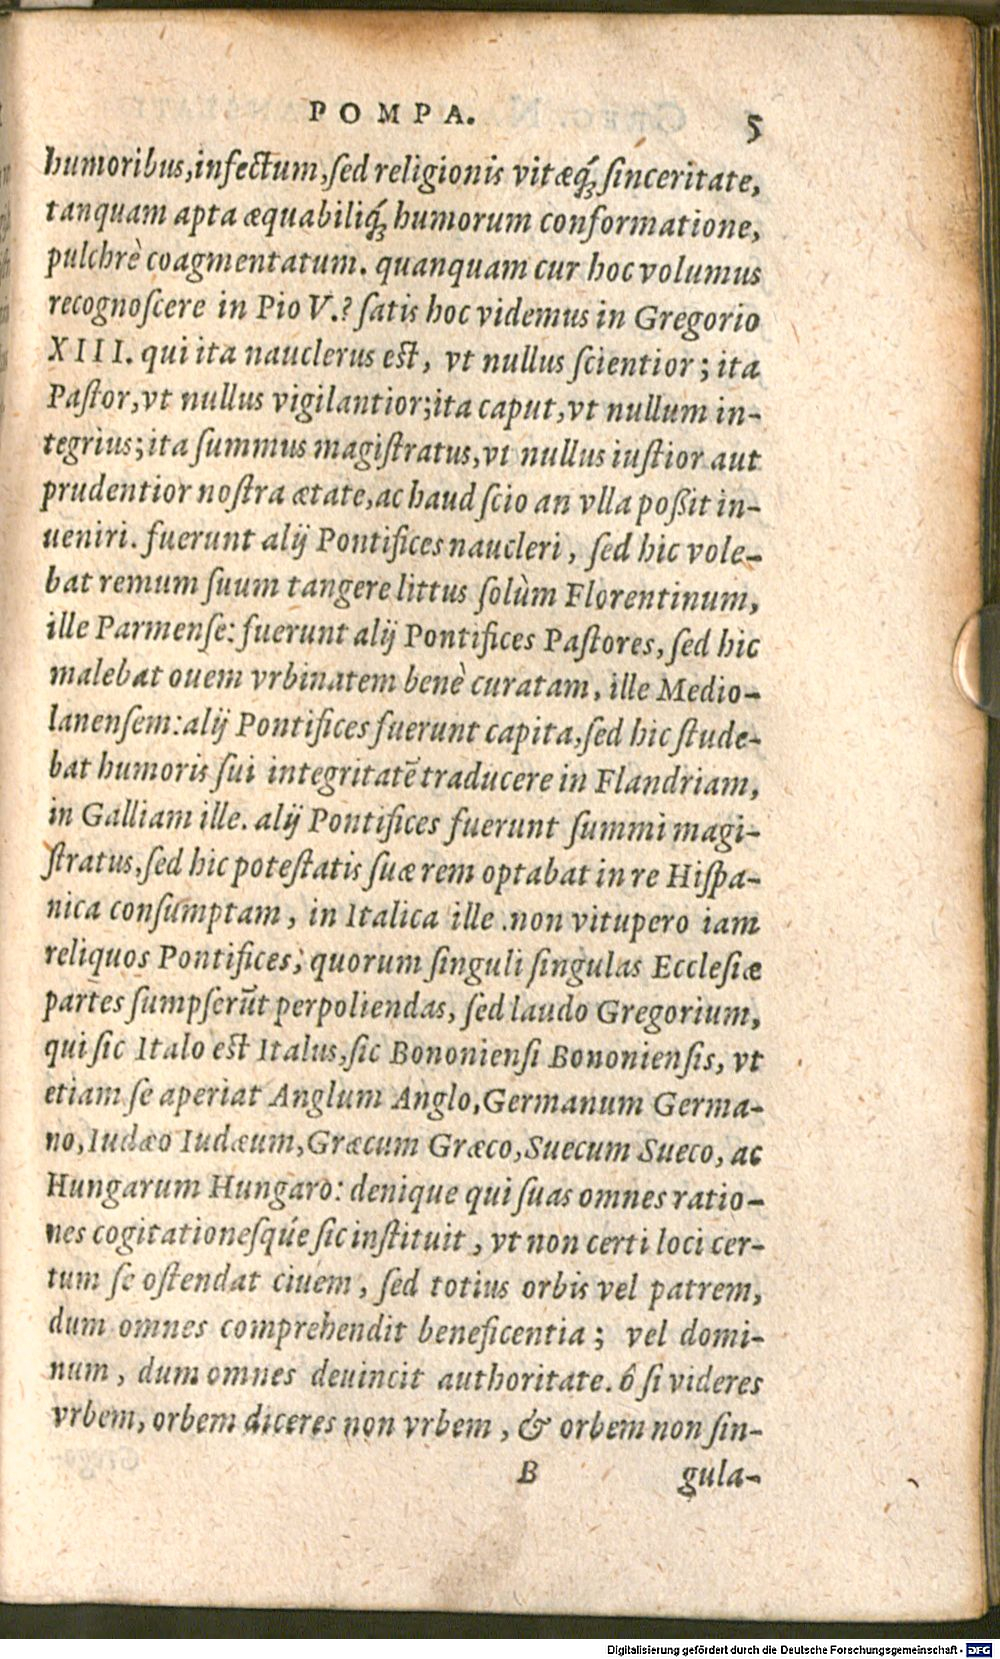 POMPA. 5
humoribus, infectum, sed religionis vitæq́; sinceritate,
tanquam apta æquabiliq́; humorum conformatione,
pulchrè coagmentatum. quanquam cur hoc volumus
recognoscere in Pio V.? satis hoc videmus in Gregorio
XIII. qui ita nauclerus est, vt nullus scientior; ita
Pastor, vt nullus vigilantior; ita caput, vt nullum in-
tegrius; ita summus magistratus, vt nullus iustior aut
prudentior nostra ætate, ac haud scio an vlla poßit in-
ueniri. fuerunt alij Pontifices naucleri, sed hic vole-
bat remum suum tangere littus solùm Florentinum,
ille Parmense: fuerunt alij Pontifices Pastores, sed hic
malebat ouem vrbinatem benè curatam, ille Medio-
lanensem: alij Pontifices fuerunt capita, sed hic stude-
bat humoris sui integritatē traducere in Flandriam,
in Galliam ille. alij Pontifices fuerunt summi magi-
stratus, sed hic potestatis suæ rem optabat in re Hispa-
nica consumptam, in Italica ille. non vitupero iam
reliquos Pontifices, quorum singuli singulas Ecclesiæ
partes sumpserūt perpoliendas, sed laudo Gregorium,
qui sic Italo est Italus, sic Bononiensi Bononiensis, vt
etiam se aperiat Anglum Anglo, Germanum Germa-
no, Iudæo Iudæum, Græcum Græco, Suecum Sueco, ac
Hungarum Hungaro: denique qui suas omnes ratio-
nes cogitationesq́ue sic instituit, vt non certi loci cer-
tum se ostendat ciuem, sed totius orbis vel patrem,
dum omnes comprehendit beneficentia; vel domi-
num, dum omnes deuincit authoritate. ô si videres
vrbem, orbem diceres non vrbem, & orbem non sin-
B gula-
Digitalisierung gefördert durch die Deutsche Forschungsgemeinschaft - DFG